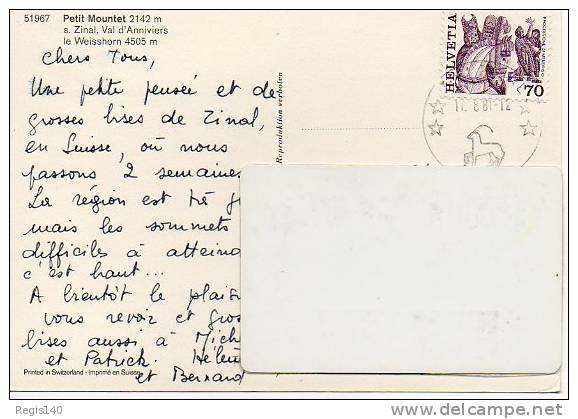 51967 Petit Mountet 2142 m
s. Zinal, Val d'Anniviers
le Weisshorn 4505 m
Chers Tous,
Une petite pensée et de
grosses bises de Zinal,
en Suisse, où nous
passons 2 semaines
La région est
mais les sommets
difficiles à attein
c'est haut...
A bientôt le plaisi
vous revoir et gros
bises aussi à Mich
et Patrick. Hélèn
et Bernard
Printed in Switzerland - Imprimé en Suisse
Reproduktion verboten
HELVETIA
70
8.81-12
Regis140
delcampe.net